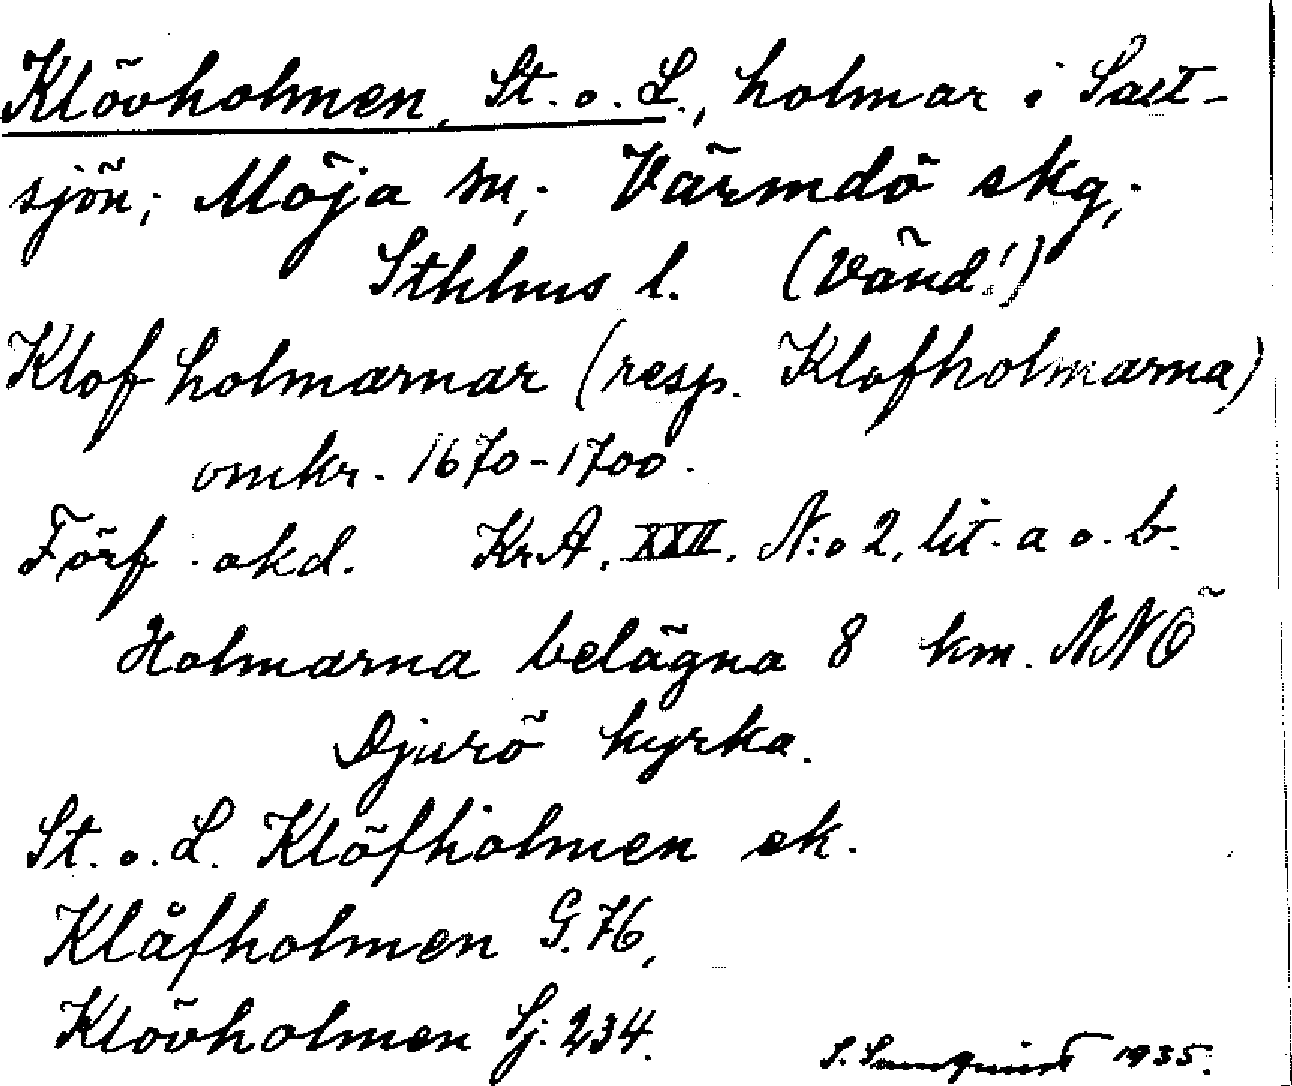 Klövholmen, St. o. L., holmar i Salt-
sjön; Möja sn; Värmdö skg;
Sthlms l. (Vänd!)
Klof holmarnar (resp. Klofholmarna)
omkr. 1670-1700.
Förf. okd. KrA. XXII. N:o 2, lit. a o. b.
Holmarna belägna 8 km. NNÖ
Djurö kyrka.
St. o. L. Klöfholmen ek.
Klåfholmen G. 76,
Klövholmen Sj. 234.
S. 1935.